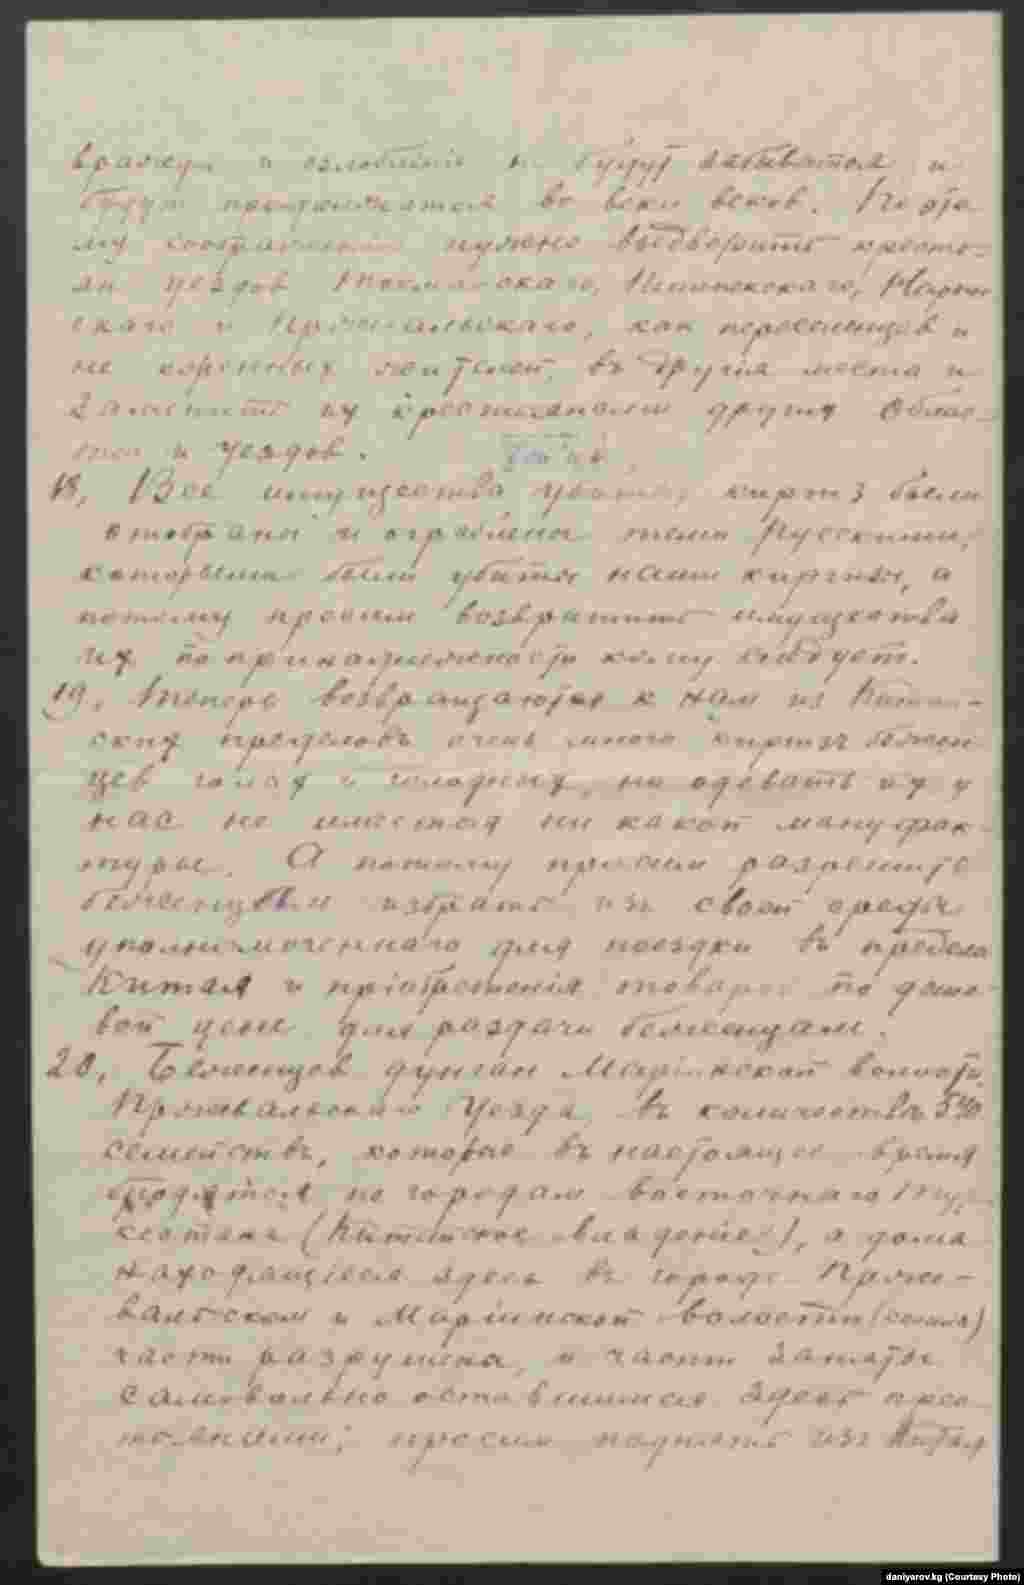 вражду и озлобление не будут забыватся и
будут продолжатся во веки веков. По это
му соображению нужно выдворить кресть-
ян уездов Пишпекского,
скаго и Пржевальскаго, как переселенцев и
не коренных жителей, въ другія места и
заменить их крестьянами других облас-
тей и уездов.
18, Все имущества убитых киргиз были
отобраны и ограблены теми Русскими,
которыми были убиты наши киргизы, а
потому просим возвратить имущества
их по принадлежности кому следует.
19, Теперь возвращаются к нам из Китай-
ских пределовъ очень много киргиз бежен
цев голых и голодных, но одевать их у
нас не имеется ни какой мануфак-
туры. А потому просим разрешить
беженцам избрать изъ своей среды
уполномоченнаго для поездки въ пределы
Китая и пріобретенія товаров по деше-
вой цене для раздачи беженцам.
20, Беженцов дунган Маріинской волости,
Пржевальскаго Уезда, въ количестве 540
семействъ, которые въ настоящее время
бродятся по городам восточнаго Тур-
кестана (Китайское владение), а дома
находящіеся здесь в городе Прже-
вальском и Маріинской волости
части разрушены, и част заняты
самовольно оставшимися здесь крес
тьянами; просим поднять изъ Китая
daniyarov.kg (Courtesy Photo)